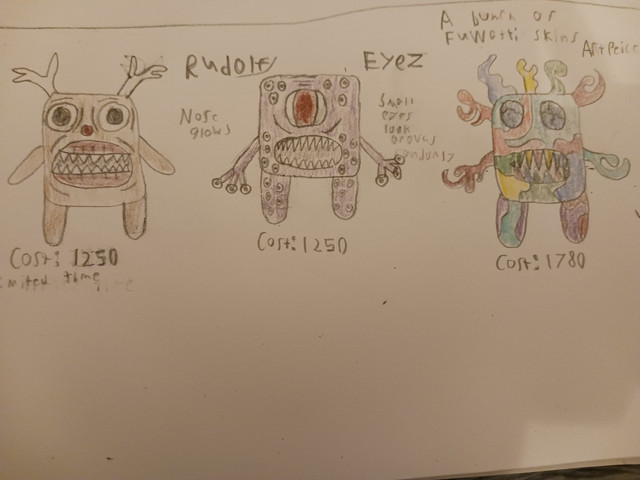 A bunch of
Fuwatti skins
Rudolf
Eyez
Art Peice
Nose
glows
Small
eyes
look
around
randomly
Cost: 1250
Limited time
Cost: 1250
Cost: 1780